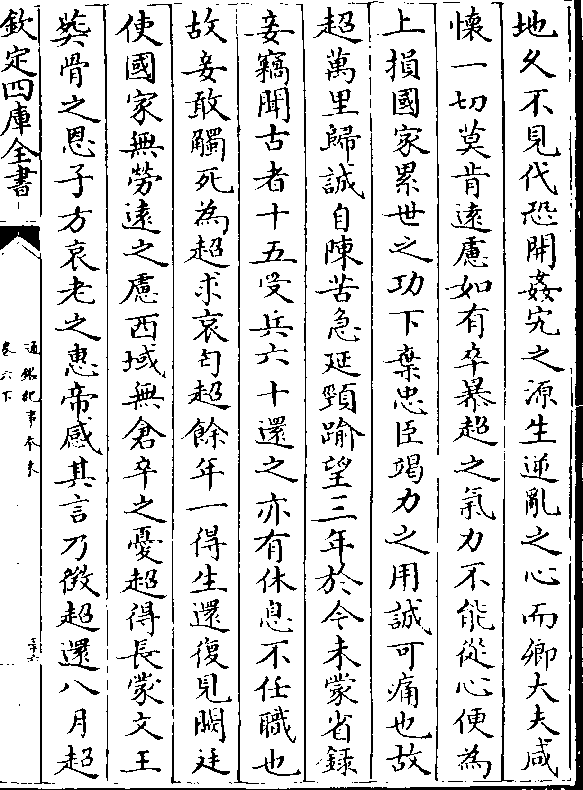 地久不見代恐開姦宄之源生逆亂之心而卿大夫咸
懷一切莫肯遠慮如有卒暴超之氣力不能從心便為
上損國家累世之功下棄忠臣竭力之用誠可痛也故
超萬里歸誠自陳苦急延頸踰望三年於今未蒙省録
妾竊聞古者十五受兵六十還之亦有休息不任職也
故妾敢觸死為超求哀匄超餘年一得生還復見闕廷
使國家無勞逺之慮西域無倉卒之憂超得長蒙文王
葬骨之恩子方哀老之惠帝感其言乃徴超還八月超
欽定四庫全書
通鑑紀事本末
卷六下
三六